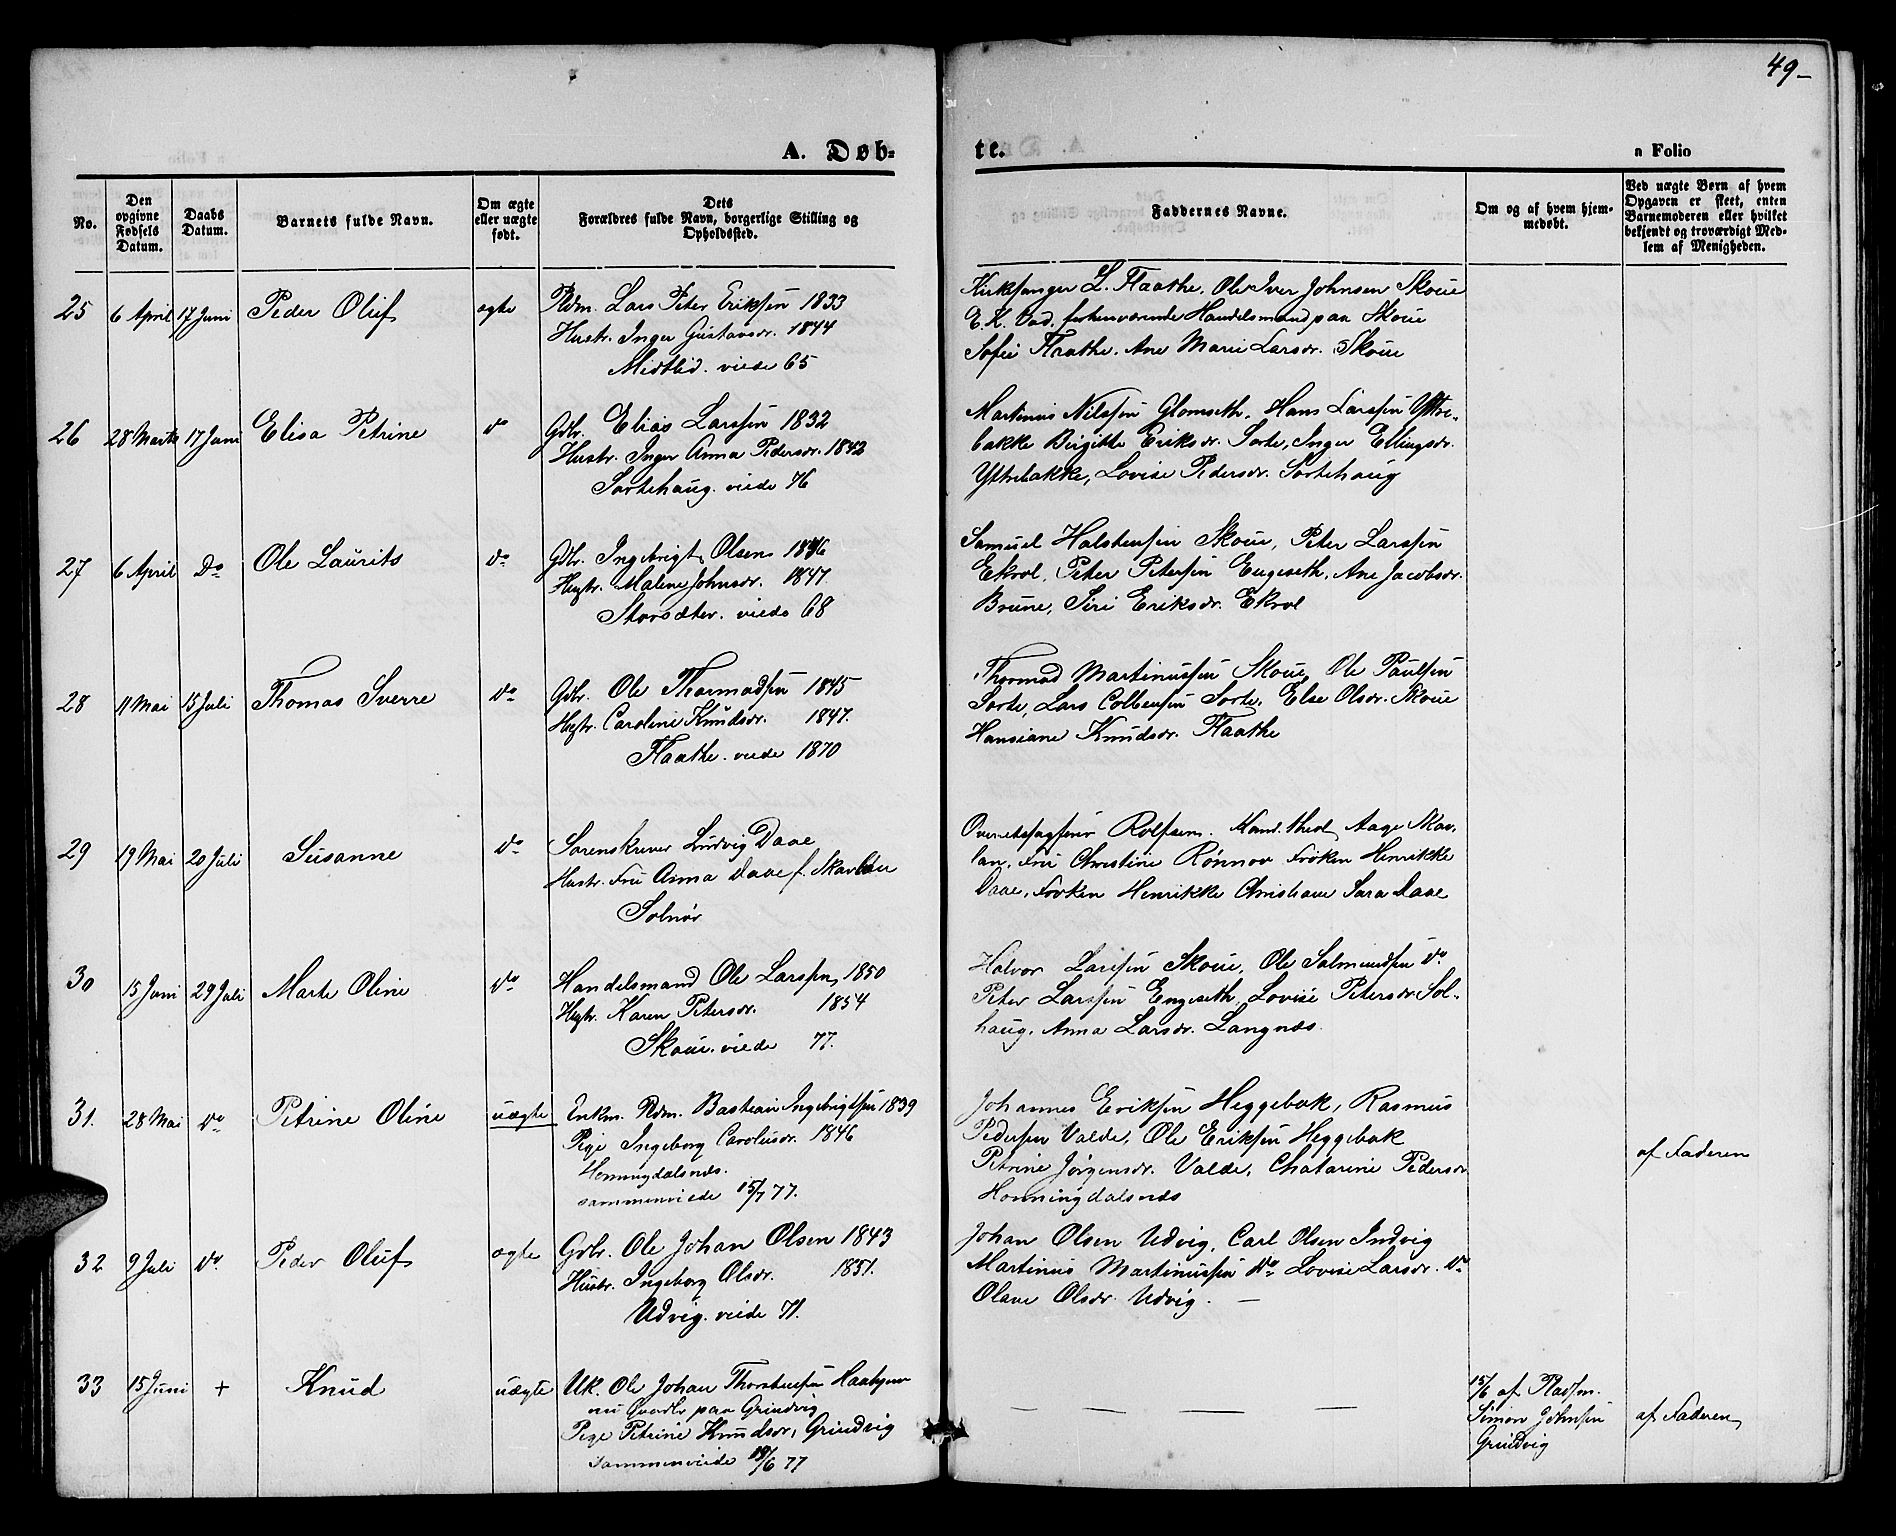 49-
A. Døb-
te.
n Folio
No.
Den
opgivne
Fødsels
Datum.
Daabs
Datum.
Barnets fulde Navn.
Om ægte
eller uægte
født.
Dets
Forældres fulde Navn, borgerlige Stilling og
Opholdssted.
Faddernes Navne.
Om og af hvem hjem-
medøbt.
Ved uægte Børn af hvem
Opgaven er skeet, enten
Barnemoderen eller hvilket
bekjendt og troværdigt Med-
lem af Menigheden.
25 6 April 17 Juni Peder Oluf ægte
Pldm. Lars Peter Eriksen 1833
Hustr. Inger Gustavsdr. 1844
Midtlid. viede 65
Kirkesanger L. Flaathe, Ole Iver Johnsen Skoue
E. K. Vad, forhenværende Handelsmand paa Skoue
Sofie Flaathe, Ane Marie Larsdr. Skoue
26 28 Marts 17 Juni Elisa Petrine do
Gdbr. Elias Larssen 1832
Hustr. Inger Anna Pedersdr. 1842
Sortehaug. viede 76
Martinus Nilssen Glomseth, Hans Larssen Yttre-
bakke Birgitte Eriksdr. Sorte, Inger Ellingsdr.
Yttrebakke, Lovise Pedersdr. Sortehaug
27 6 April Do Ole Laurits do
Gdbr. Ingebrigt Olsen 1846
Hustr. Malene Johnsdr. 1847.
Storsæter. viede 68
Samuel Halstensen Skoue, Peter Larssen
Ekrol, Peter Petersen Engeseth, Ane Jacobsdr.
Brune, Siri Eriksdr. Ekrol
28 11 Mai 15 Juli Thomas Sverre do
Gdbr. Ole Thormodsen 1845
Hustr. Caroline Knudsdr. 1847.
Flaathe. viede 1870
Thormod Martinussen Skoue, Ole Paulsen
Sorte, Lars Colbensen Sorte, Else Olsdr. Skoue
Hansiane Knudsdr. Flaathe
29 19 Mai 20 Juli Susanne do
Sorenskriver Ludvig Daae
Hustr. Fru Anna Daae f. Skavlan
Solnør
Overretssagfører Rolfsen. Kand. theol. Aage Skav-
lan, Fru Christine Rønnov Frøken Henrikke
Daae, Frøken Henrikke Christiane Sara Daae
30 15 Juni 29 Juli Marte Oline do
Handelsmand Ole Larssen 1850
Hustr. Karen Petersdr. 1854
Skoue. viede 77.
Halvor Larssen Skoue, Ole Salmundsen do
Peter Larssen Engeseth, Lovise Petersdr. Sol-
haug, Anna Larsdr. Langnæs.
31. 28 Mai do Petrine Oline uægte
Enkm. Pldm. Bastian Ingebrigtsen 1839
Pige Ingeborg Carolusdr. 1846
Honningdalsnæs.
sammenviede 15/7 77.
Johannes Eriksen Heggebak, Rasmus
Pedersen Valde, Ole Eriksen Heggebak
Petrine Jørgensdr. Valde, Chatarine Pedersdr.
Honningdalsnæs
af Faderen
32 9 Juli do. Peder Oluf ægte
Gdbr. Ole Johan Olsen 1843
Hustr. Ingeborg Olsdr. 1851.
Udvig. viede 71.
Johan Olsen Udvig, Carl Olsen Indvig
Martinus Martinussen do Lovise Larsdr. do
Olave Olsdr. Udvig. —
33 15 Juni + Knud uægte
Uk. Ole Johan Thorstensen
nu paa Grindvig
Pige Petrine Knudsdr. Grindvig
sammenviede 19/6 77
15/6 af Pladsm.
Simon Johnsen
Grindvig
af Faderen